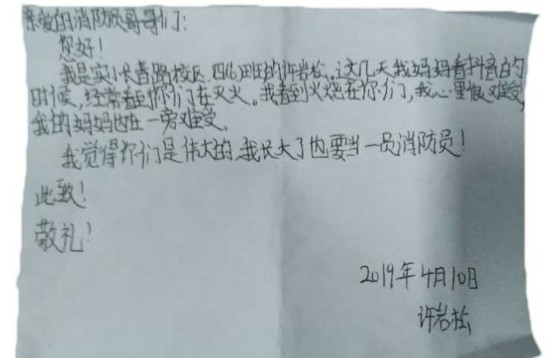 亲爱的消防员哥哥们:
您好!
我是实小长春路校区四(6)班的许岩松,这几天我妈妈看抖音的
时候,经常看到你们在灭火。我看到火烧在你们,我心里很难受,
我的妈妈也在一旁难受。
我觉得你们是伟大的,我长大了也要当一员消防员!
此致!
敬礼!
2019年4月10日
许岩松